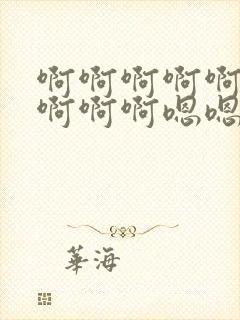 啊啊啊啊啊
啊啊啊嗯嗯
華海